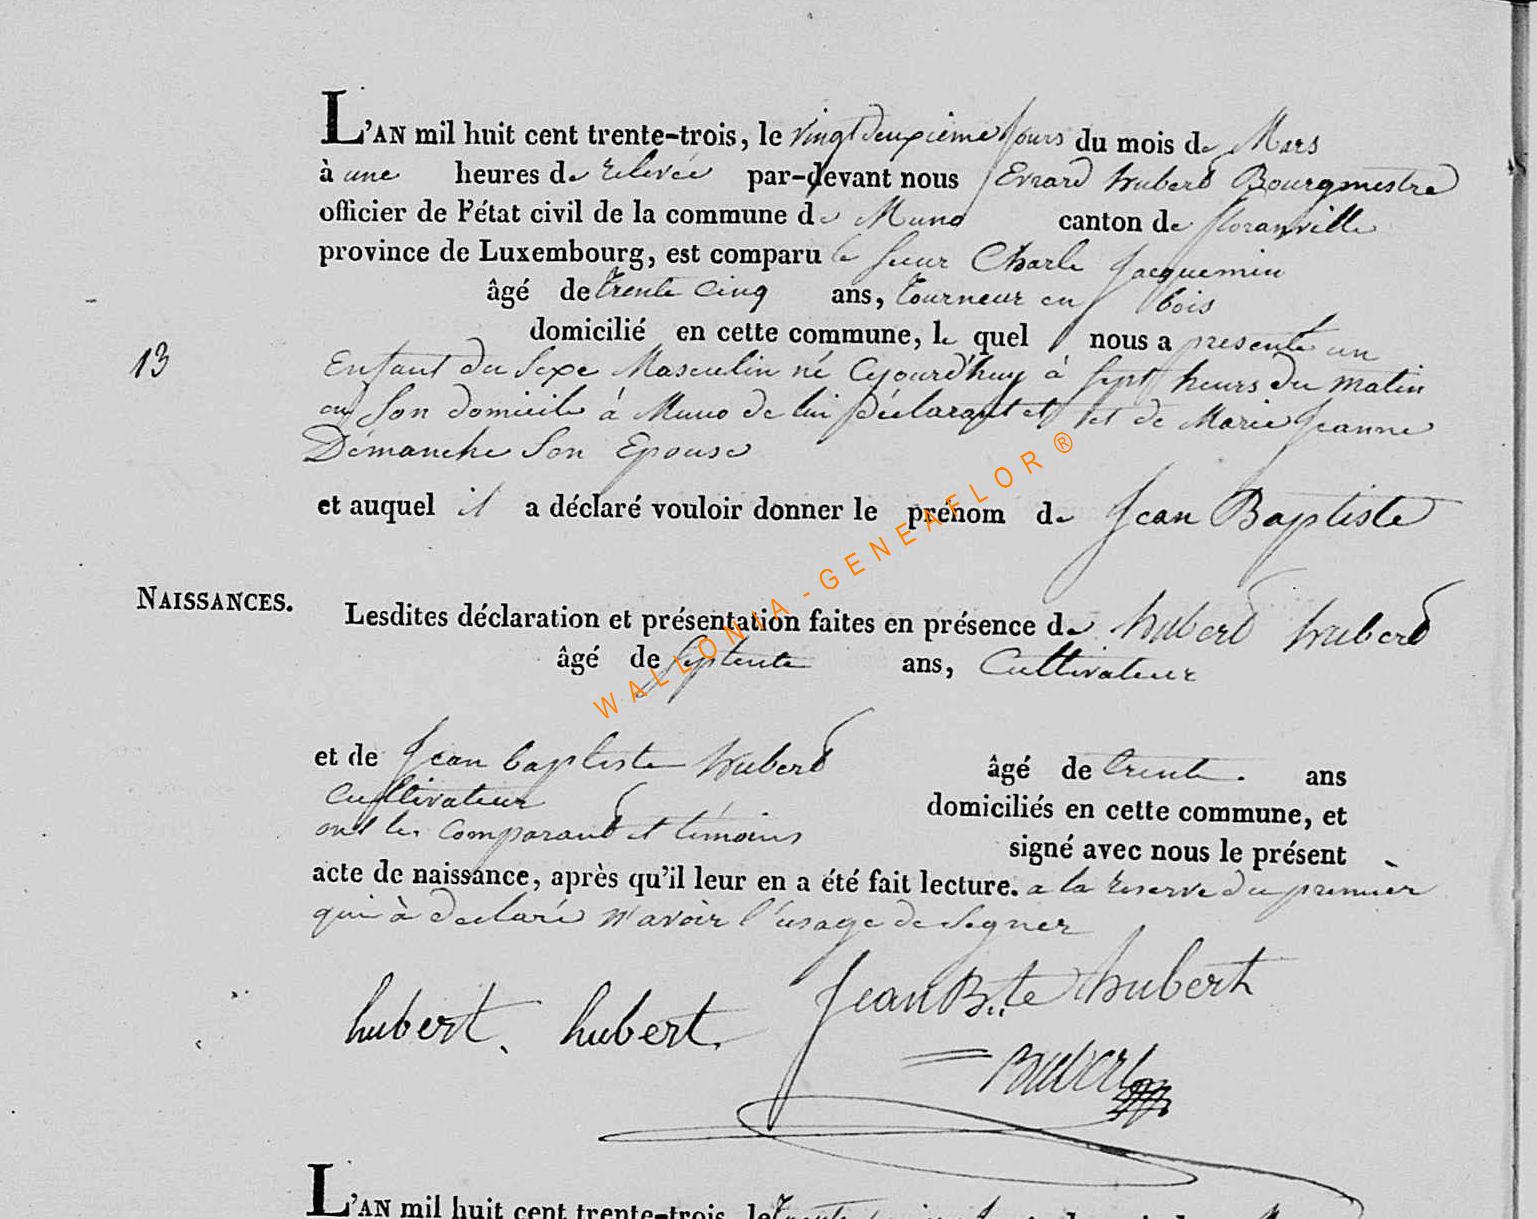 L'AN mil huit cent trente-trois, le vingt deuxième jours du mois de Mars
à une heures de relevée par-devant nous Evrard hubert Bourgmestre
officier de l'état civil de la commune de Muno canton de floranville
province de Luxembourg, est comparu le sieur Charle Jacquemin
âgé de trente cinq ans, tourneur en bois
domicilié en cette commune, le quel nous a presenté un
13
Enfant du Sexe Masculin né Cejourd'huy à sept heurs du matin
en son domicile à Muno de lui déclarant et et de Marie Jeanne
Démanche Son Epouse
et auquel il a déclaré vouloir donner le prénom de Jean Baptiste
NAISSANCES.
Lesdites déclaration et présentation faites en présence de hubert hubert
âgé de septente ans, Cultivateur
et de Jean baptiste hubert âgé de trente ans
Cultivateur domiciliés en cette commune, et
ont les comparant et témoins signé avec nous le présent
acte de naissance, après qu'il leur en a été fait lecture. a la reserve du premièr
qui à declaré n'avoir l'usage de Segner
hubert. hubert. Jean Bte hubert
L'AN mil huit cent trente-trois, le
WALLONIA-GENEAFLOR ®